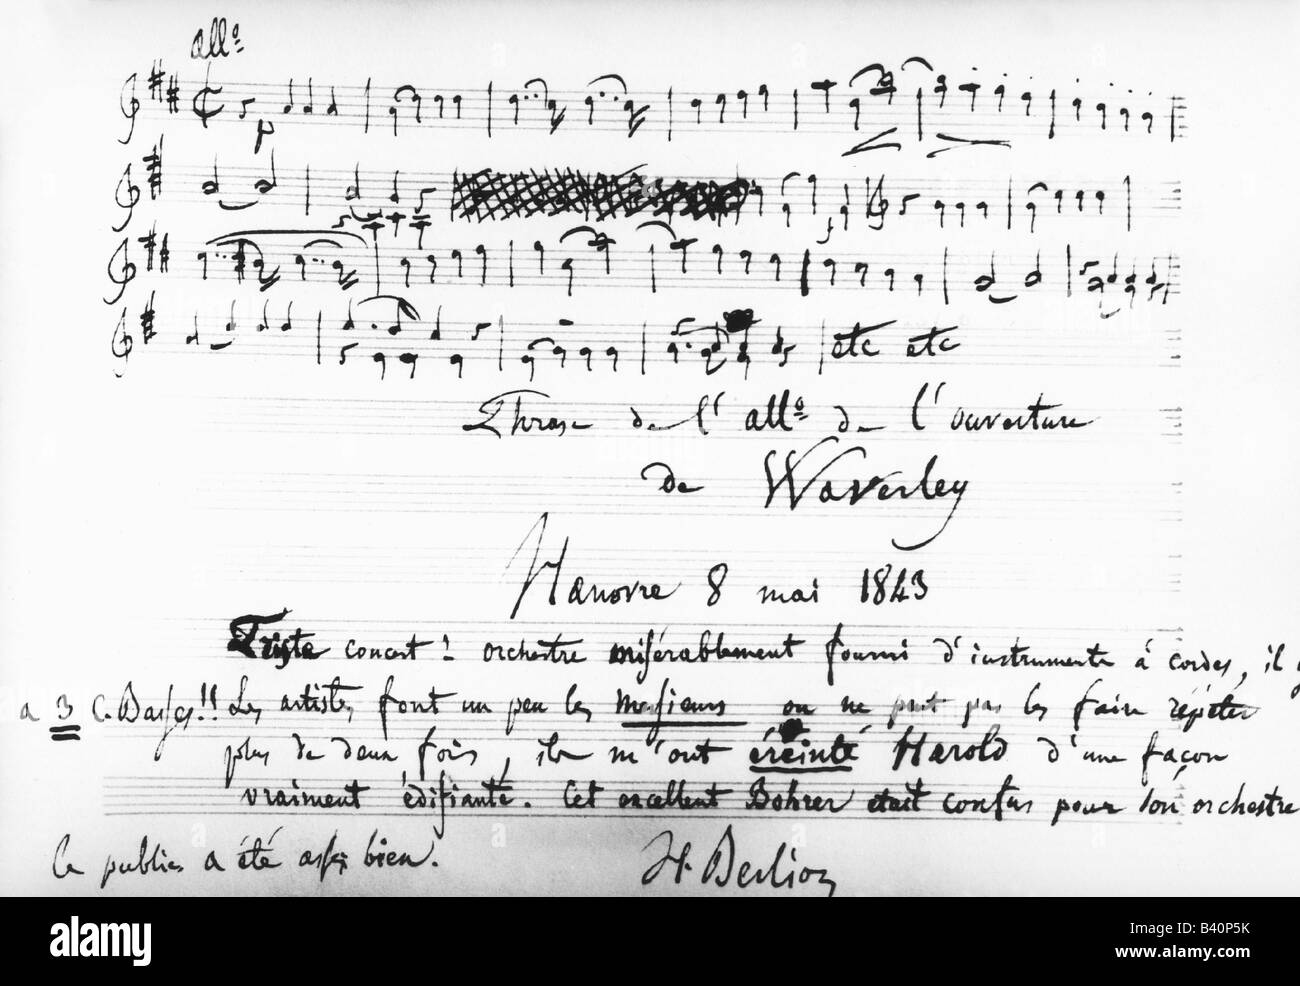 all°
p
f
etc etc
Phrase de l'all° de l'ouverture
de Waverley
Hanovre 8 mai 1843
Triste concert! orchestre misérablement fourni d'instruments à cordes, il y
a 3 C. Basses!! Les artistes font un peu les messieurs on ne peut pas les faire répéter
plus de deux fois, ils m'ont éreinté Harold d'une façon
vraiment édifiante. Cet excellent Bohrer était confus pour son orchestre
le public a été assez bien. H. Berlioz
alamy
Image ID: B40P5K
www.alamy.com